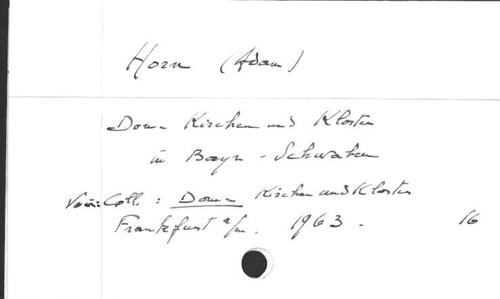 Horn (Adam)
Dome Kirchen und Kloster
in Bayr - Schwaben
Voir: Coll: Dome Kirchen und Kloster
Frankfurt a/m. 1963. 16